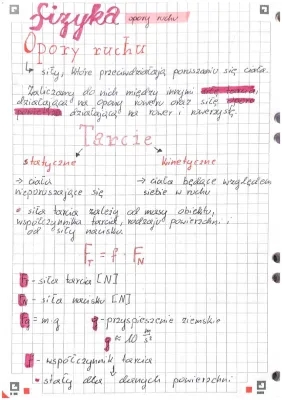 fizyka opory ruchu
Opory ruchu
↳ siły, które przeciwdziałają poruszaniu się ciała.
Zaliczamy do nich między innymi siłę tarcia,
działającą na opony roweru oraz siłę oporu
powietrza działającą na rower i rowerzystę.
Tarcie
statyczne
kinetyczne
→ ciała
nieporuszające się
→ ciała będące względem
siebie w ruchu
• siła tarcia zależy od masy obiektu,
współczynnika tarcia, rodzaju powierzchni i
od siły nacisku
F_T = f · F_N
F_T - siła tarcia [N]
F_N - siła nacisku [N]
F_g = m·g
g - przyspieszenie ziemskie
g ≈ 10 m/s²
f - współczynnik tarcia
• stały dla danych powierzchni